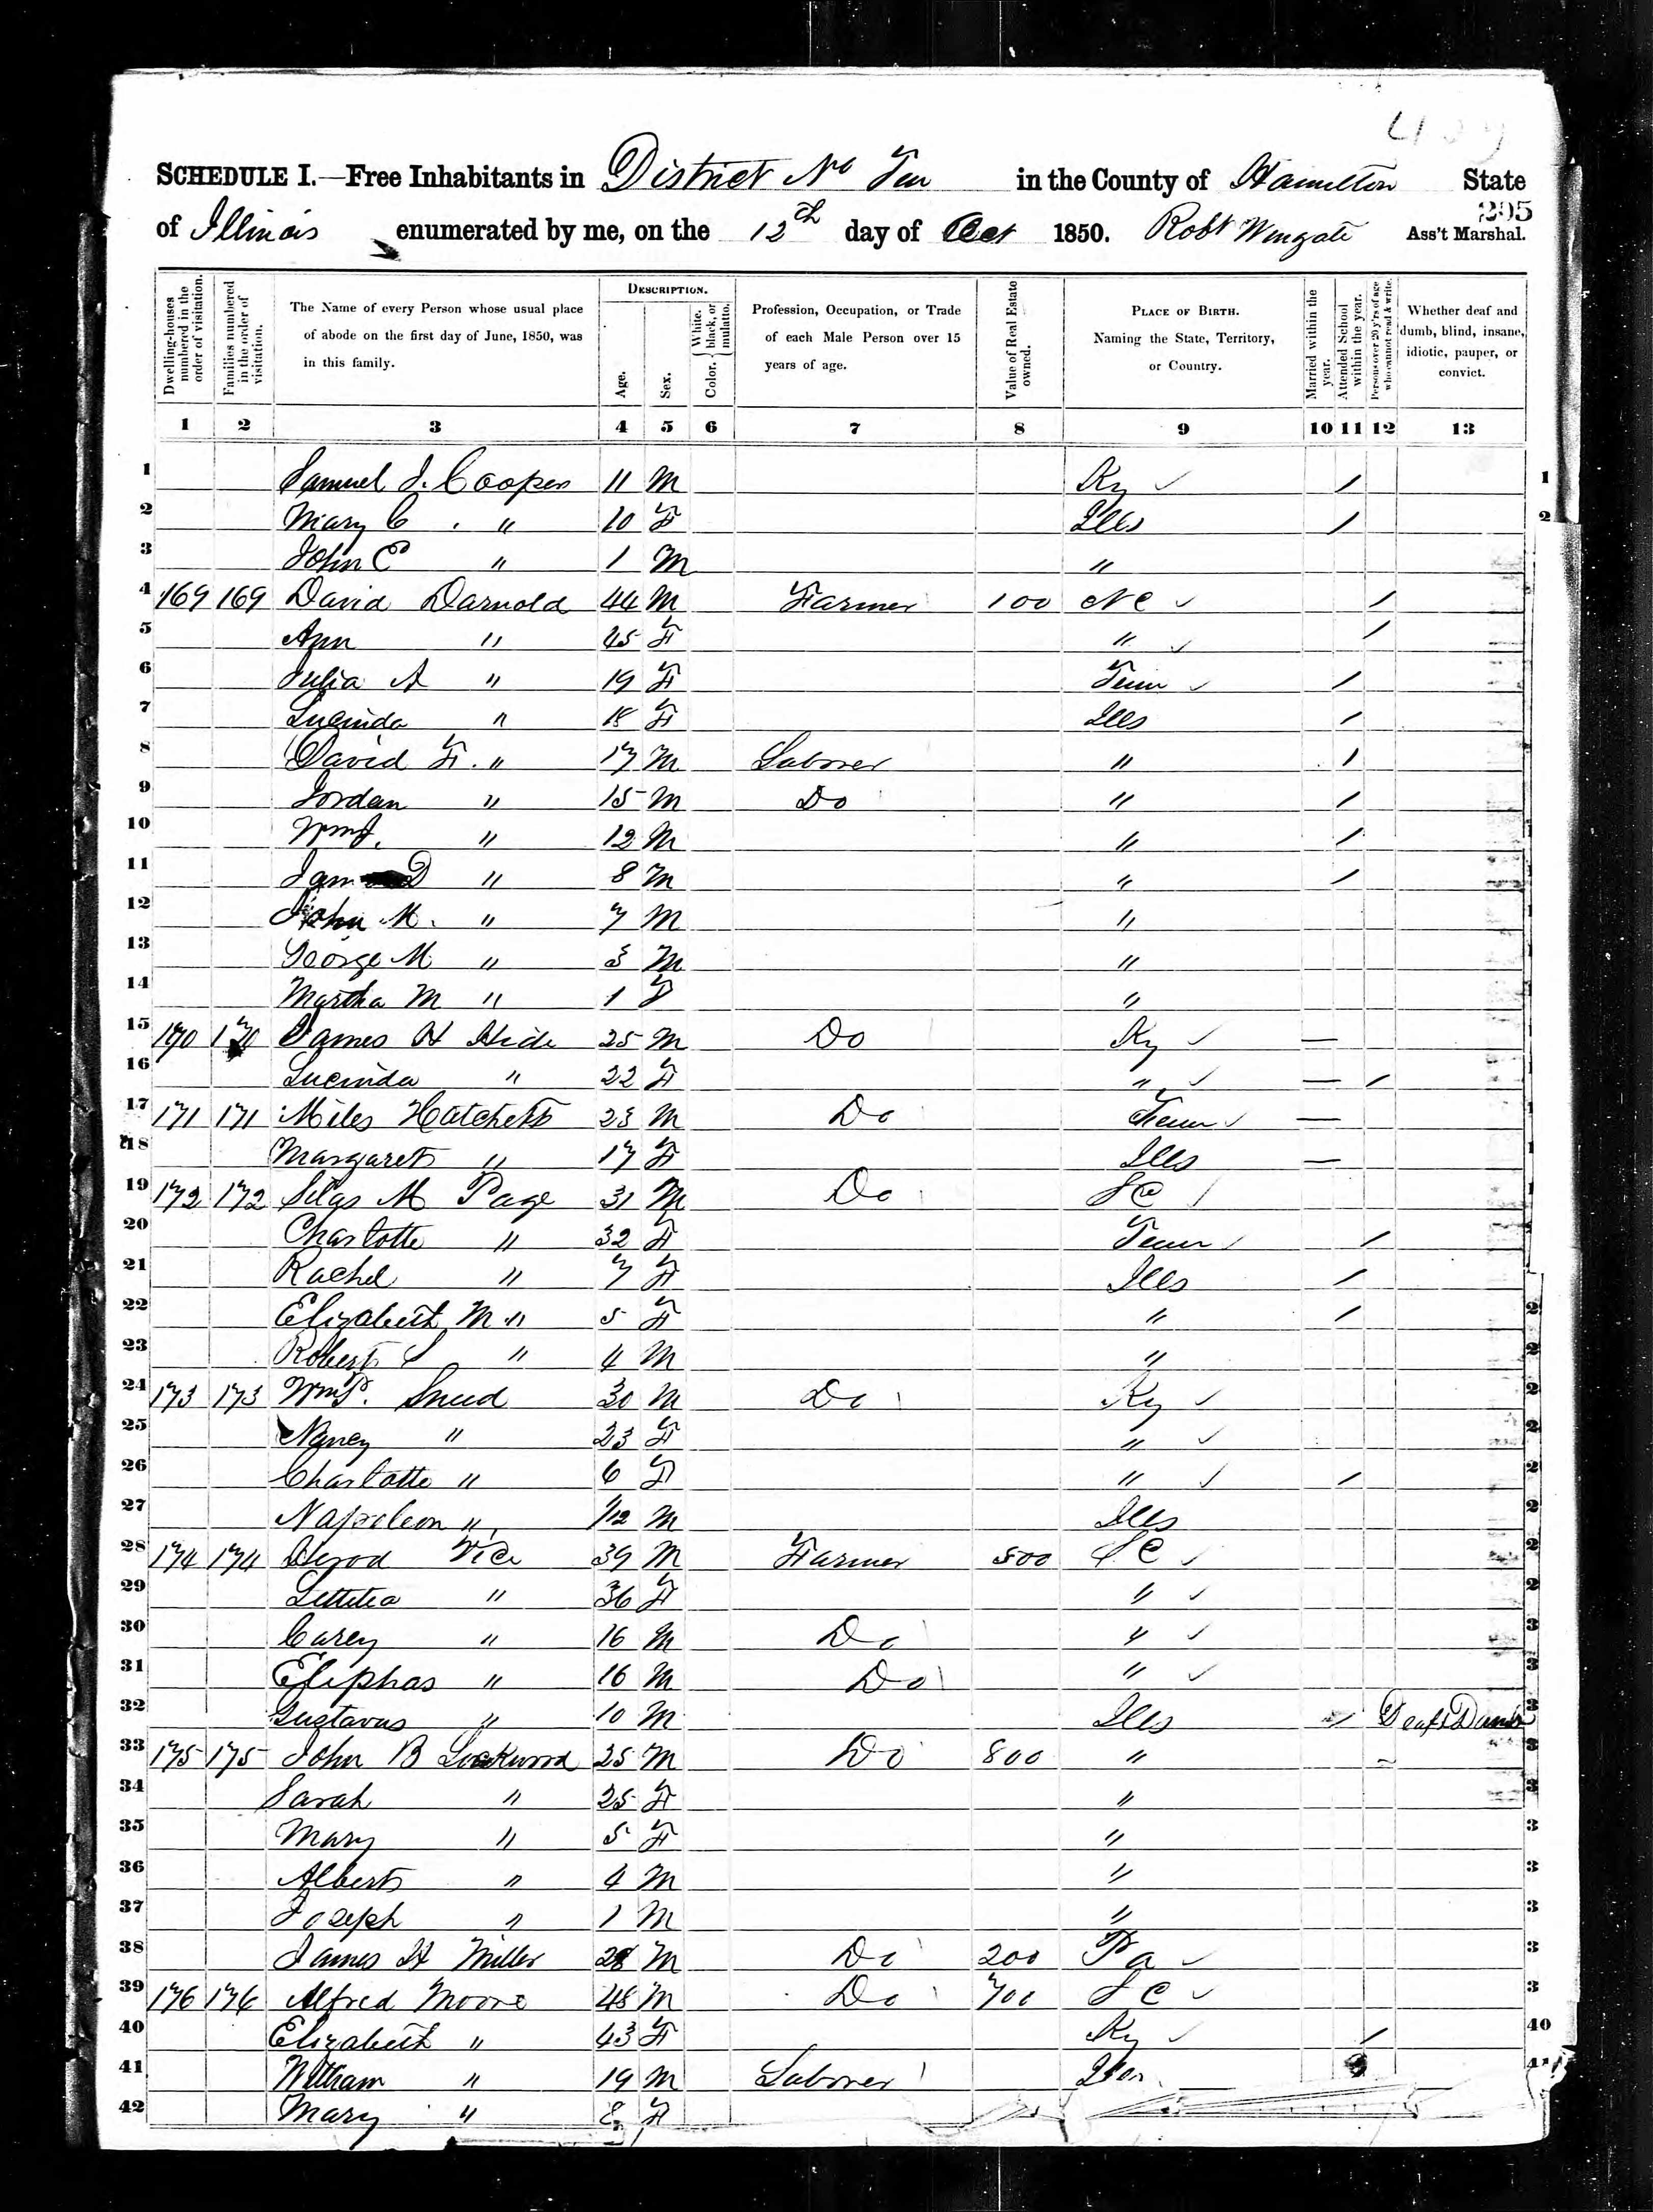 SCHEDULE I.—Free Inhabitants in District No Ten in the County of Hamilton State
295
of Illinois enumerated by me, on the 12th day of Oct 1850. Robt Wingate Ass't Marshal.
Dwelling-houses numbered in the order of visitation. Families numbered in the order of visitation. The Name of every Person whose usual place of abode on the first day of June, 1850, was in this family. DESCRIPTION. Age. Sex. Color. { White, black, or mulatto. Profession, Occupation, or Trade of each Male Person over 15 years of age. Value of Real Estate owned. PLACE OF BIRTH. Naming the State, Territory, or Country. Married within the year. Attended School within the year. Persons over 20 y'rs of age who cannot read & write. Whether deaf and dumb, blind, insane, idiotic, pauper, or convict.
1 2 3 4 5 6 7 8 9 10 11 12 13
1 Samuel J. Cooper 11 M Ky ✓ / 1
2 Mary C. " 10 F Ills / 2
3 John E " 1 M "
4 169 169 David Darnold 44 M Farmer 100 NC ✓ /
5 Ann " 45 F " ✓ /
6 Julia A " 19 F Tenn ✓ /
7 Lucinda " 18 F Ills /
8 David F. " 17 M Laborer " /
9 Jordan " 15 M Do " /
10 Wm J. " 12 M " /
11 Jam D " 8 M " /
12 John M. " 7 M "
13 George M " 3 M "
14 Martha M " 1 F "
15 170 170 James H Hide 25 M Do Ky ✓ —
16 Lucinda " 22 F " ✓ — /
17 171 171 Miles Hatchett 23 M Do Tenn ✓ —
18 Margaret " 17 F Ills —
19 172 172 Silas M Page 31 M Do SC /
20 Charlotte " 32 F Tenn / /
21 Rachel " 7 F Ills /
22 Elizabeth M " 5 F " /
23 Robert S " 4 M "
24 173 173 Wm P. Sneed 30 M Do Ky ✓
25 Nancy " 23 F " ✓
26 Charlotte " 6 F " ✓ /
27 Napoleon " 1/12 M Ills
28 174 174 Herod Vice 39 M Farmer 500 SC ✓
29 Lettitea " 36 F " ✓
30 Carey " 16 M Do " ✓
31 Eliphas " 16 M Do " ✓
32 Gustavus " 10 M Ills / Deaf & Dumb
33 175 175 John B Lockwood 25 M Do 800 "
34 Sarah " 25 F "
35 Mary " 5 F "
36 Albert " 4 M "
37 Joseph " 1 M "
38 James H Miller 28 M Do 200 Pa ✓
39 176 176 Alfred Moore 48 M Do 700 SC ✓
40 Elizabeth " 43 F Ky ✓ / 40
41 William " 19 M Laborer Ills
42 Mary " 8 F